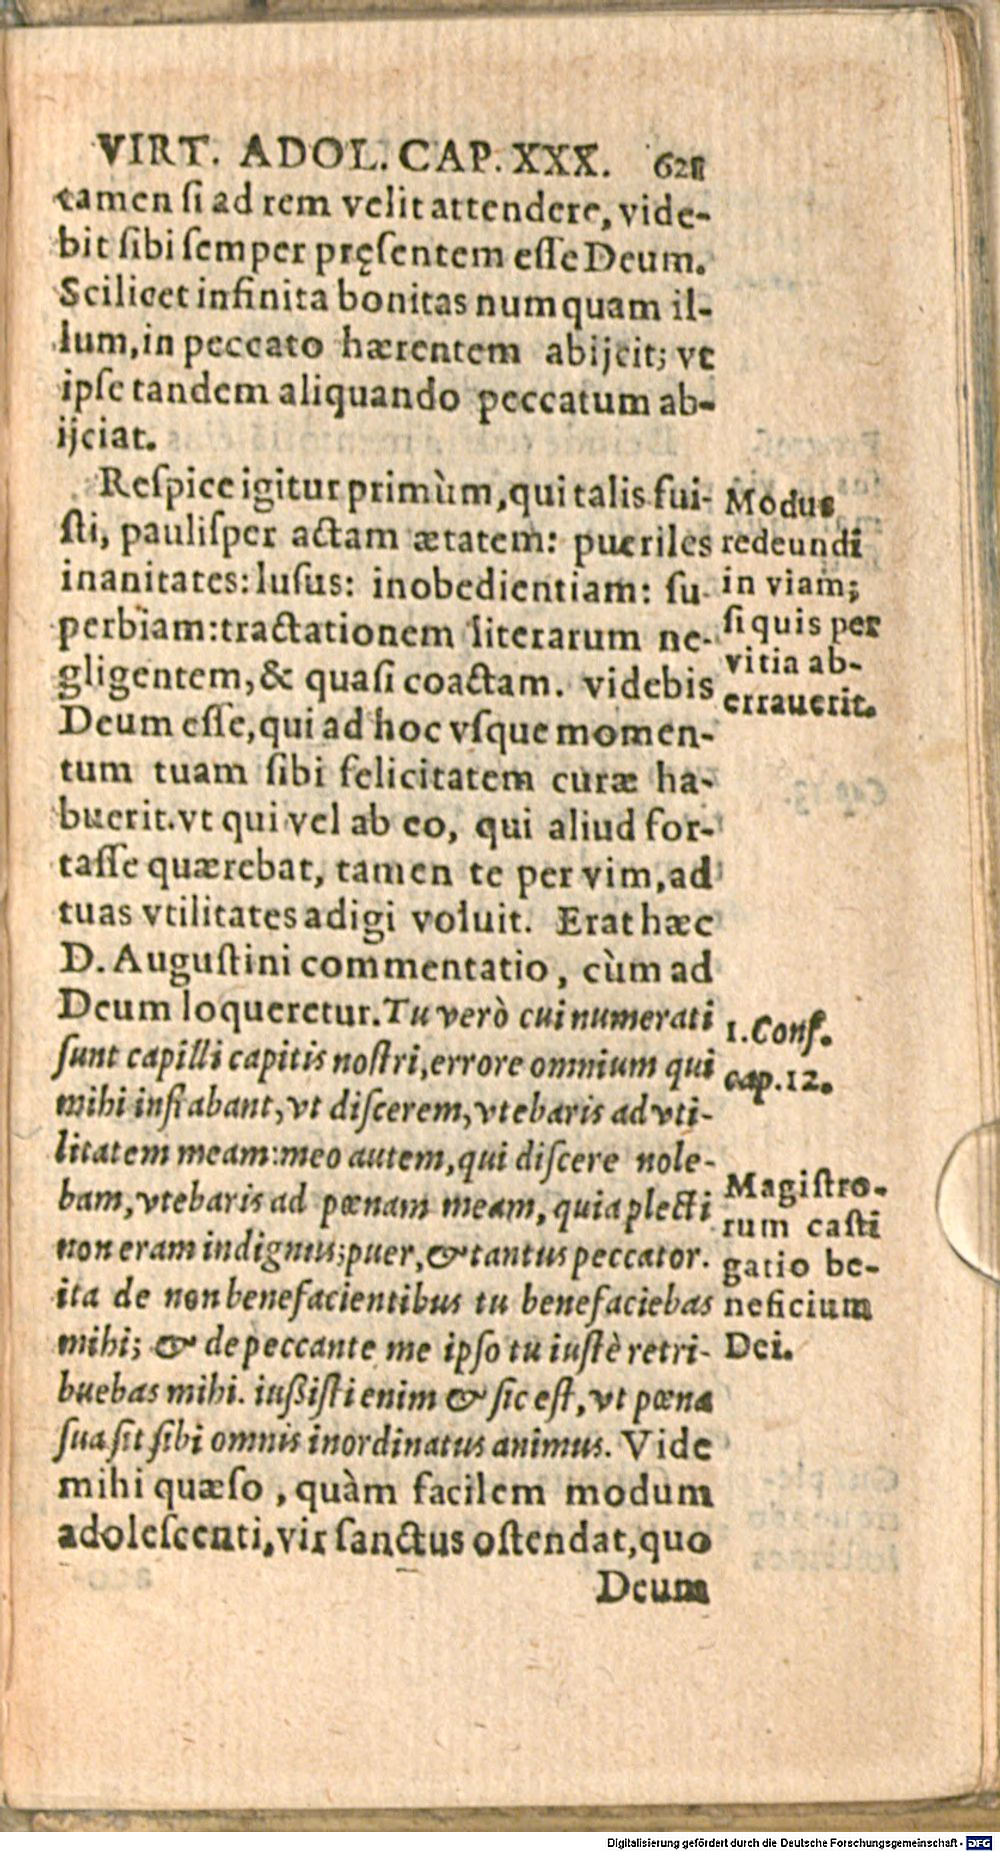 VIRT. ADOL. CAP. XXX. 621
tamen si ad rem velit attendere, vide-
bit sibi semper pręsentem esse Deum.
Scilicet infinita bonitas numquam il-
lum, in peccato hærentem abijcit; vt
ipse tandem aliquando peccatum ab-
ijciat.
Respice igitur primùm, qui talis fui-
sti, paulisper actam ætatem: pueriles
inanitates: lusus: inobedientiam: su-
perbiam: tractationem literarum ne-
gligentem, & quasi coactam. videbis
Deum esse, qui ad hoc vsque momen-
tum tuam sibi felicitatem curæ ha-
buerit. vt qui vel ab eo, qui aliud for-
tasse quærebat, tamen te per vim, ad
tuas vtilitates adigi voluit. Erat hæc
D. Augustini commentatio, cùm ad
Deum loqueretur. Tu verò cui numerati
sunt capilli capitis nostri, errore omnium qui
mihi instabant, vt discerem, vtebaris ad vti-
litatem meam: meo autem, qui discere nole-
bam, vtebaris ad pœnam meam, quia plecti
non eram indignus; puer, & tantus peccator.
ita de non benefacientibus tu benefaciebas
mihi; & de peccante me ipso tu iustè retri-
buebas mihi. iußisti enim & sic est, vt pœna
sua sit sibi omnis inordinatus animus. Vide
mihi quæso, quàm facilem modum
adolescenti, vir sanctus ostendat, quo
Deum
Modus
redeundi
in viam;
si quis per
vitia ab-
errauerit.
1. Conf.
cap. 12.
Magistro-
rum casti
gatio be-
neficium
Dei.
Digitalisierung gefördert durch die Deutsche Forschungsgemeinschaft - DFG